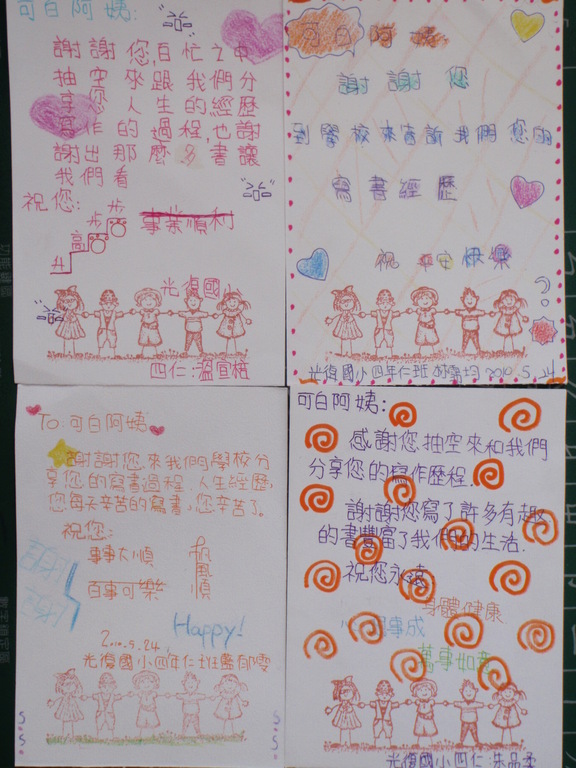 可白阿姨:
謝謝您,百忙之中
抽空來跟我們分
享您人生的經歷
寫作的過程,也謝
謝出那麼多書讓
我們看
祝您:
步步高升
事業順利
光復國小
四仁:溫宜
可白阿姨
謝謝您
到學校來寄訴我們您的
寫書經歷
祝平安快樂
光復國小四年仁班 均 2010.5.24
To:可白阿姨
謝謝您來我們學校分
享您的寫書過程.人生經歷,
您每天辛苦的寫書,您辛苦了。
祝您:
事事大順
帆風順
百事可樂
謝謝
Happy!
2010.5.24
光復國小四年仁班藍郁雯
S.S.
S.S.
可白阿姨:
感謝您抽空來和我們
分享您的寫作歷程.
謝謝您寫了許多有趣
的書豐富了我們的生活.
祝您永遠
身體健康
心想事成
萬事如意
光復國小四仁:朱品柔